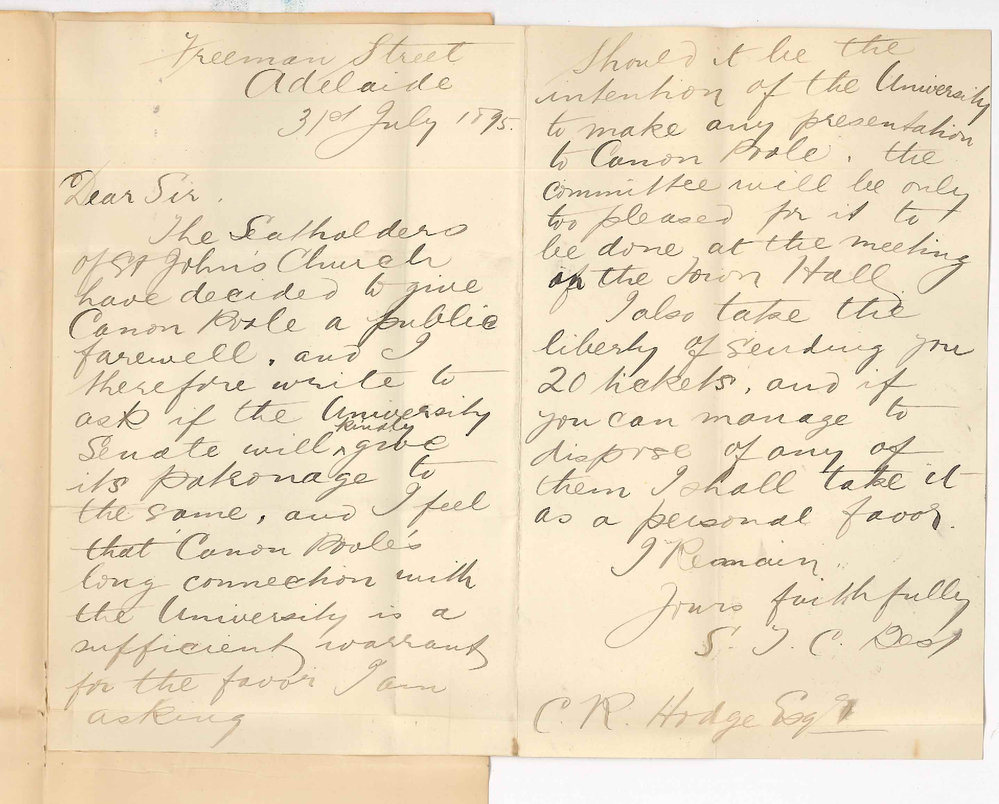 Freeman Street
Adelaide
31st July 1895.
Dear Sir.
The Seatholders
of St John's Church
have decided to give
Canon Poole a public
farewell, and I
therefore write to
ask if the University
Senate will kindly give
its patronage to
the same, and I feel
that Canon Poole's
long connection with
the University is a
sufficient warrant
for the favor I am
asking
Should it be the
intention of the University
to make any presentation
to Canon Poole, the
committee will be only
too pleased for it to
be done at the meeting
in the Town Hall
I also take the
liberty of sending you
20 tickets, and if
you can manage to
dispose of any of
them I shall take it
as a personal favor.
I Remain
Yours faithfully
S. T. C. Best
C R. Hodge Esqre